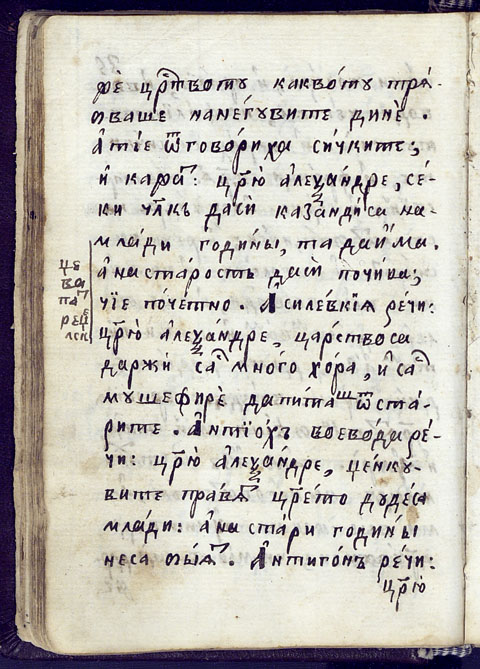 фѐ цр҃твоту каквоту трѧ́-
ѡваше нанегувите динѐ .
а́тїе ѿговориха си́чките;
и҆ каѳа: цр҃ю а҆леѯа́ндре, се́-
ки чл҃къ даси̑ каза́нди́са на-
мла́ди годи́ны, та да и҆́ма.
а́на ста́рость даси̑ почива;
чїе по́четно. А҆ силе́вкїѧ речи:
цр҃ю а҆леѯа́ндре, ца́рство са
даржи̑ са мно́го хо́ра, и҆ са
мушефирѐ да пи́та ѿ ста́-
рите . А҆нтїо́хъ воево́да ре́-
чи: цр҃ю а҆леѯа́ндре,
вите пра́вѧ цр҃е́то дуде́са
мла́ди: а҆́на ста́ри годи́ны
неса Антиго́нъ ре́чи:
цр҃ю